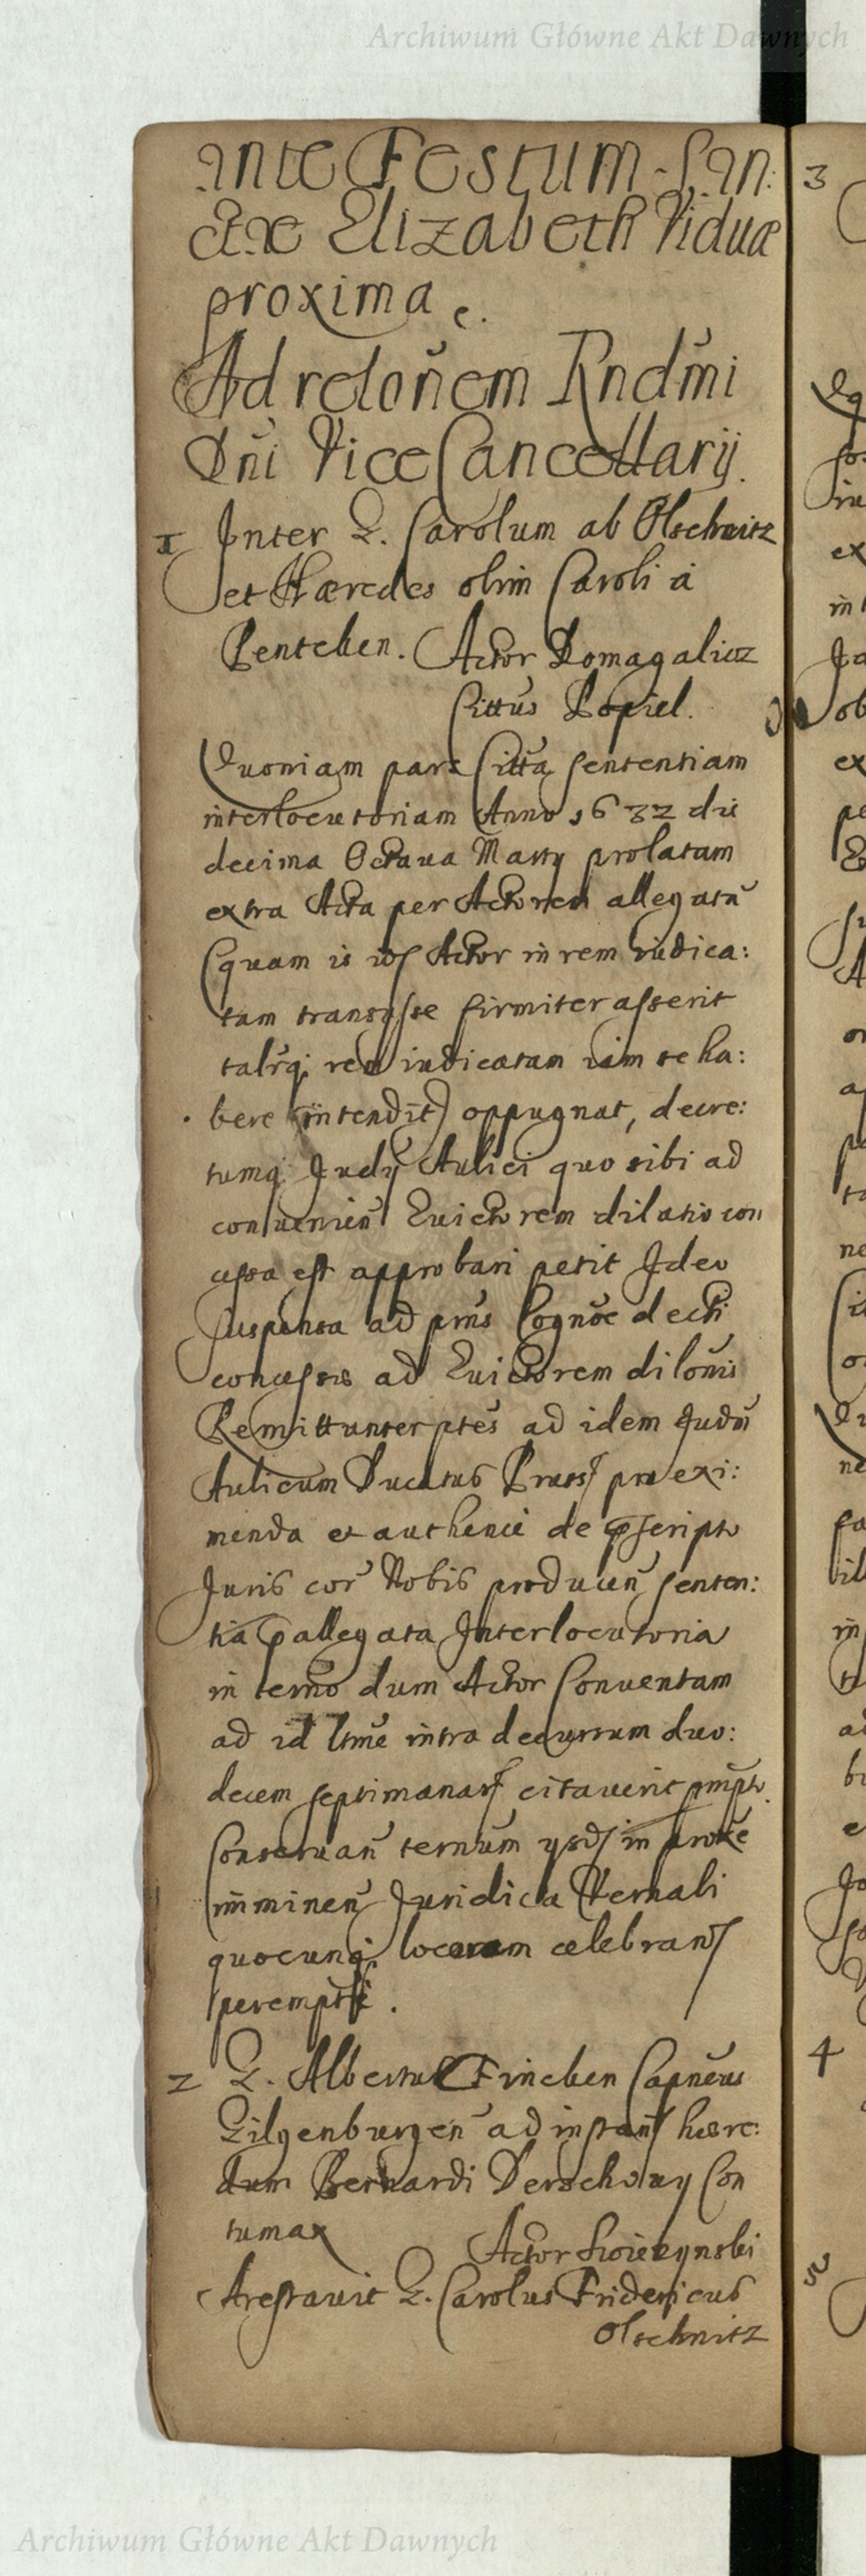 Archiwum Główne Akt Dawnych
ante Festum San:
ctæ Elizabeth Viduæ
proxima.
Ad relõnem Rndm̃i
Dñi Vice Cancellarij.
1 Inter G. Carolum ab Olschnitz
et Hæredes olim Caroli à
Pentchen. Actor Domagalicz
Cittus Popiel.
Quoniam pars Citta sententiam
interlocutoriam Anno 1632 die
decima Octaua Martij prolatam
extra Acta per Actorem allegatã
(quam is Actor in rem iudica:
tam transysse firmiter asserit
talẽq; rem iudicatam iam se ha:
bere intendit) oppugnat, decre:
tumq; Judÿ Aulici quo sibi ad
conueniẽn Euictorem dilatio con
cessa est approbari petit Ideo
suspensa ad prñs Cognõe decti
concessæ ad Euictorem dilõnis
Remittuntur ptes ad idem Judũ
Aulicum Ducatus Pruss præexi:
menda et authentice de pscripto
Juris cor Nobis producen senten:
tia pallegata Interlocutoria
in termo dum Actor Conuentam
ad id Ltme intra decursum duo:
decem septimanar citauerit
Conseruan termum in
imminen Juridica
quocunq; locorum celebran
perempt.
2 G. Albertus Fincken Capneus
Gilgenburgen ad instan hære:
dum Bernardi Derschouy Con
tumax
Actor
Arestauit G. Carolus Fridericus
Olschnitz
3
4
5
Archiwum Główne Akt Dawnych